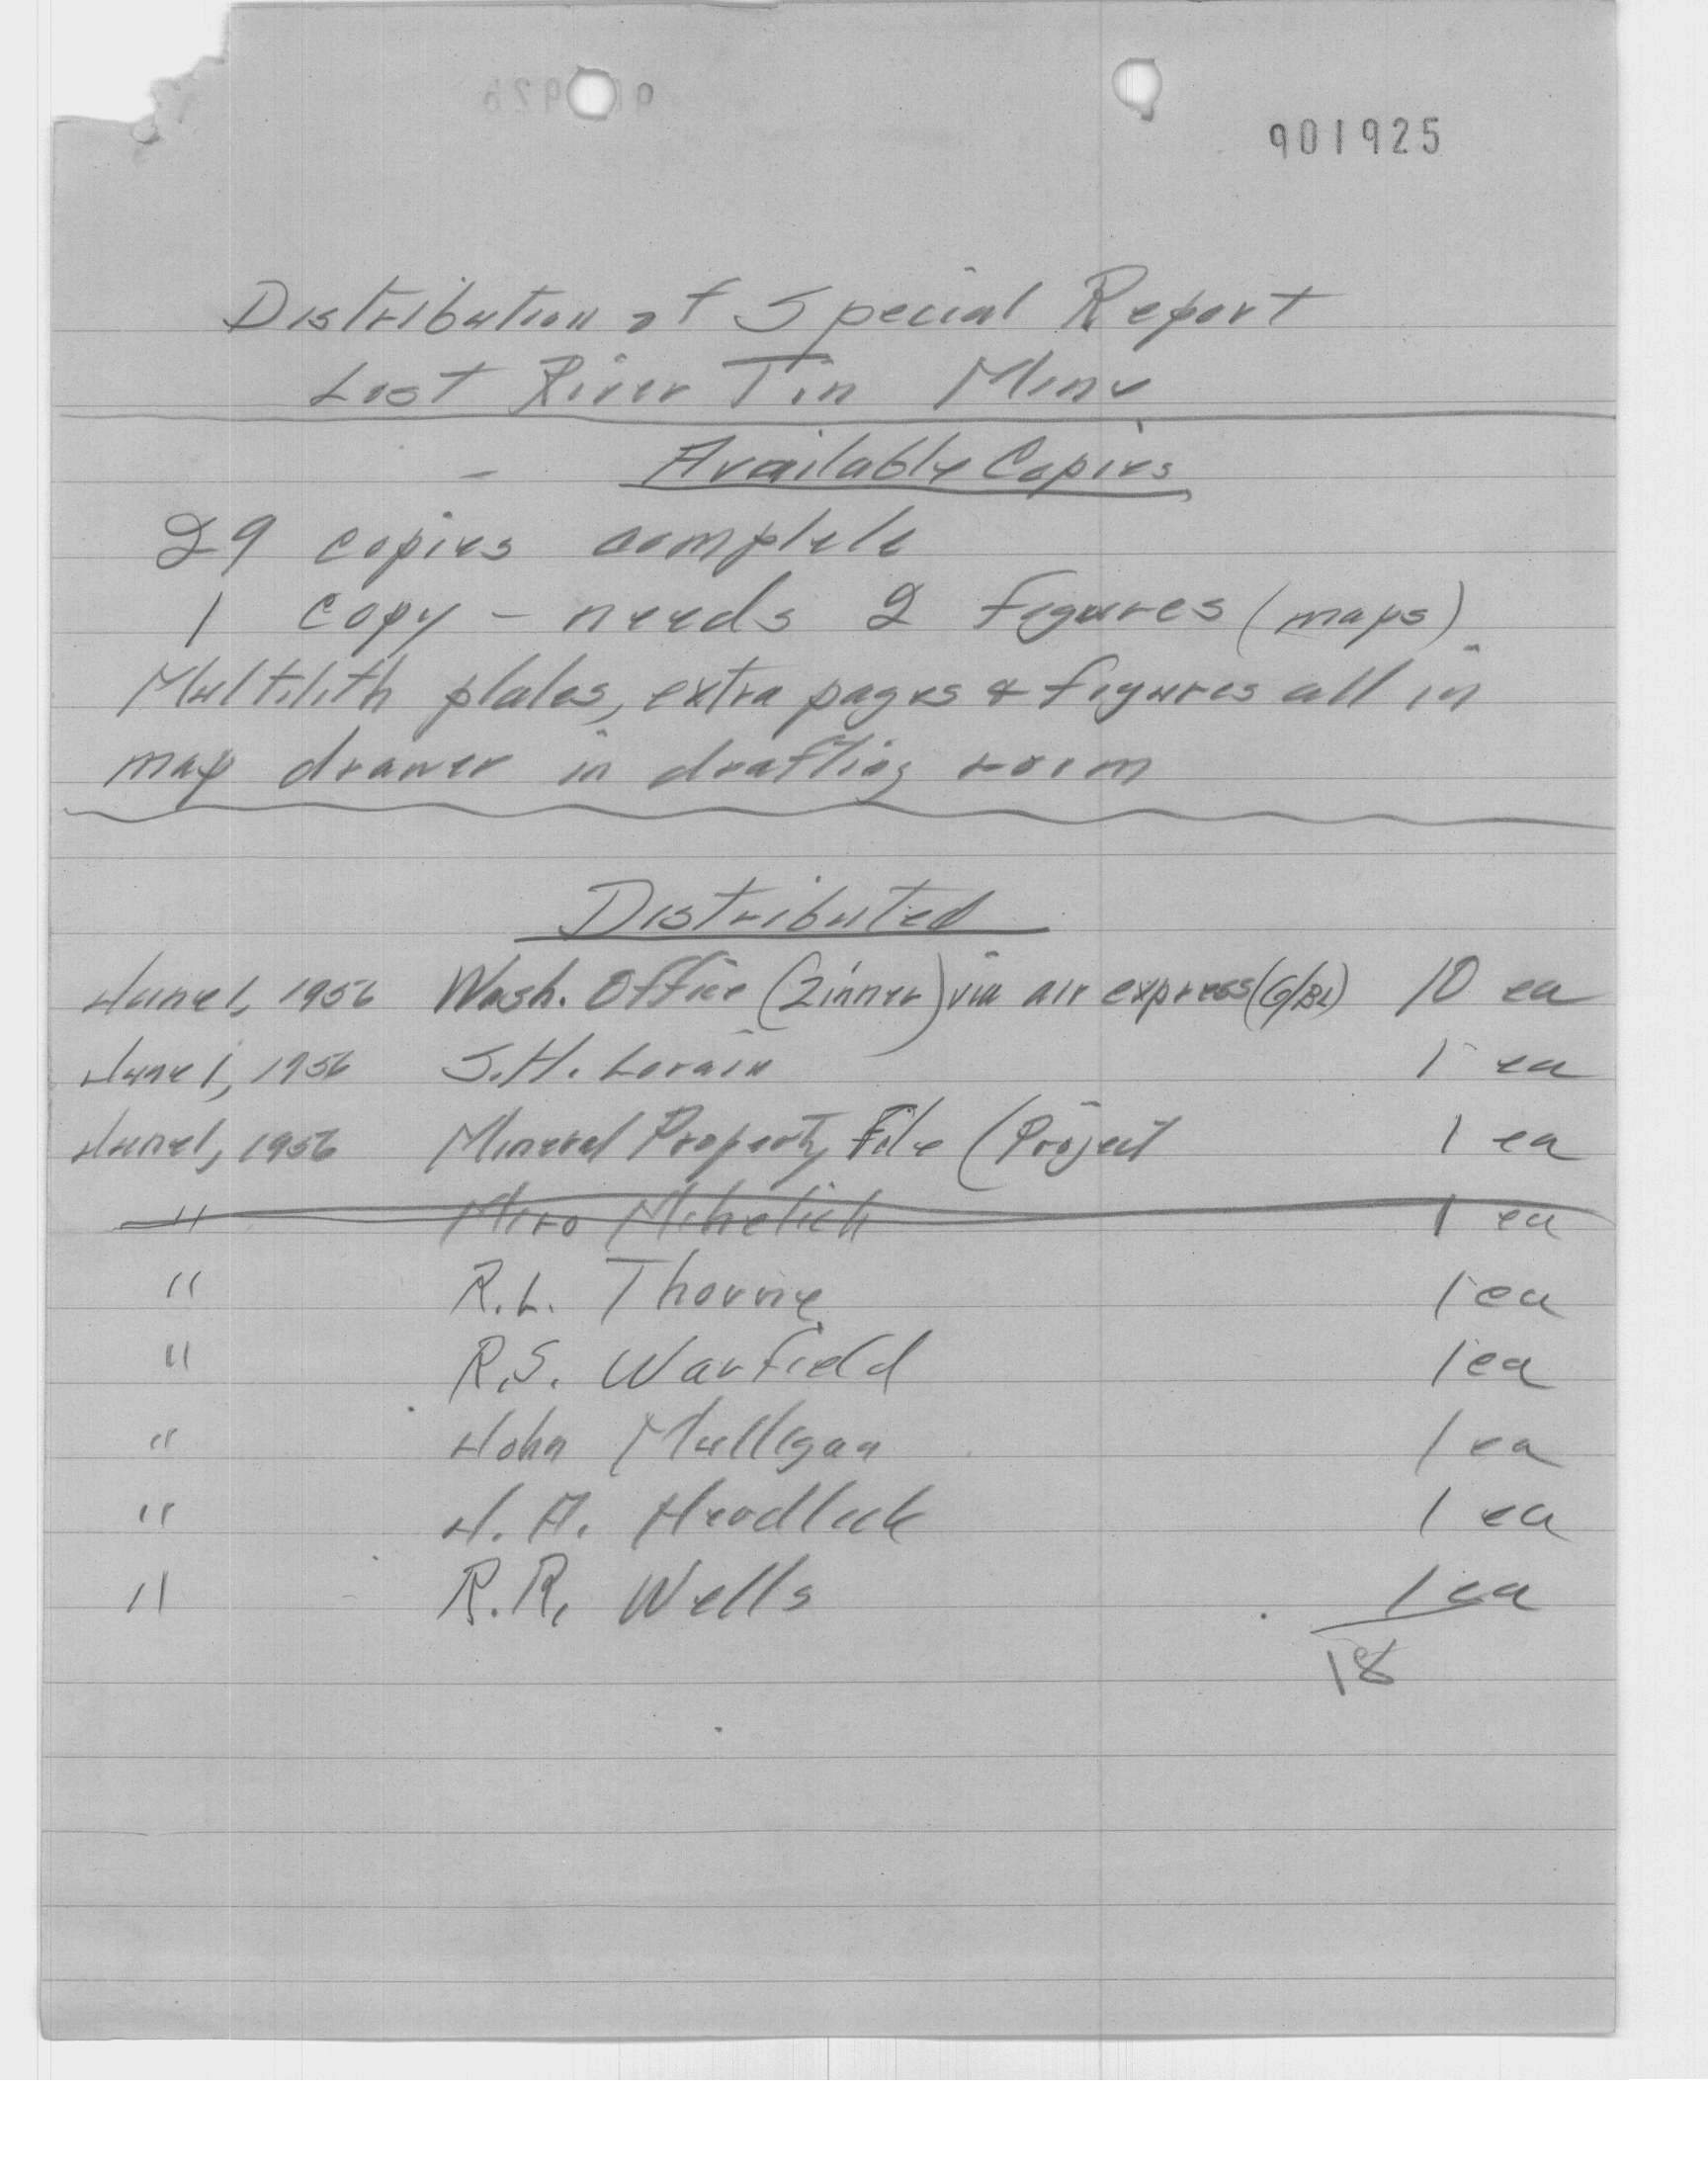 901925
Distribution of Special Report
Lost River Tin Mine
Available Copies
29 copies complete
1 copy - needs 2 figures (maps)
Multilith plates, extra pages & figures all in
map drawer in drafting room
Distributed
June 1, 1956 Wash. Office (Zinner) via air express (G/BL) 10 ea
June 1, 1956 S.H. Lorain 1 ea
June 1, 1956 Mineral Property File (Project 1 ea
" Miro Mihelich 1 ea
" R.L. Thorne 1 ea
" R.S. Warfield 1 ea
" John Mulligan 1 ea
" J. A. Herdlick 1 ea
" R.R. Wells 1 ea
18